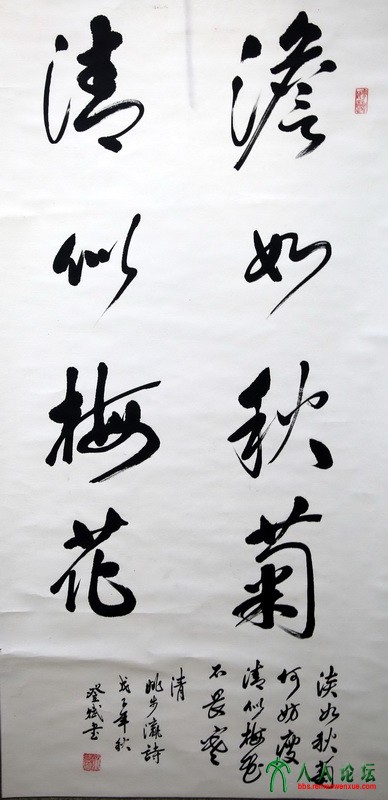 澹如秋菊
清似梅花
淡如秋菊
何妨瘦
清似梅花
不畏寒
清
姚步瀛詩
戊子年秋
癸斌書
人人论坛
bbs.renrenwenxue.com